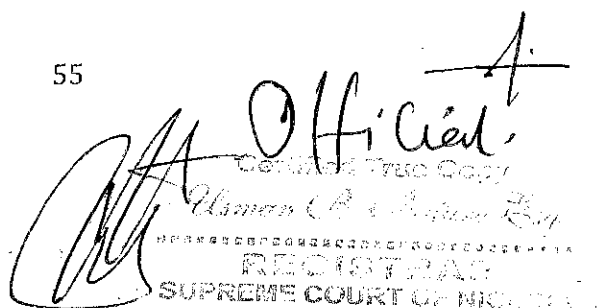 55
Official
Certified True Copy
Usman
REGISTRAR
SUPREME COURT OF NIGERIA